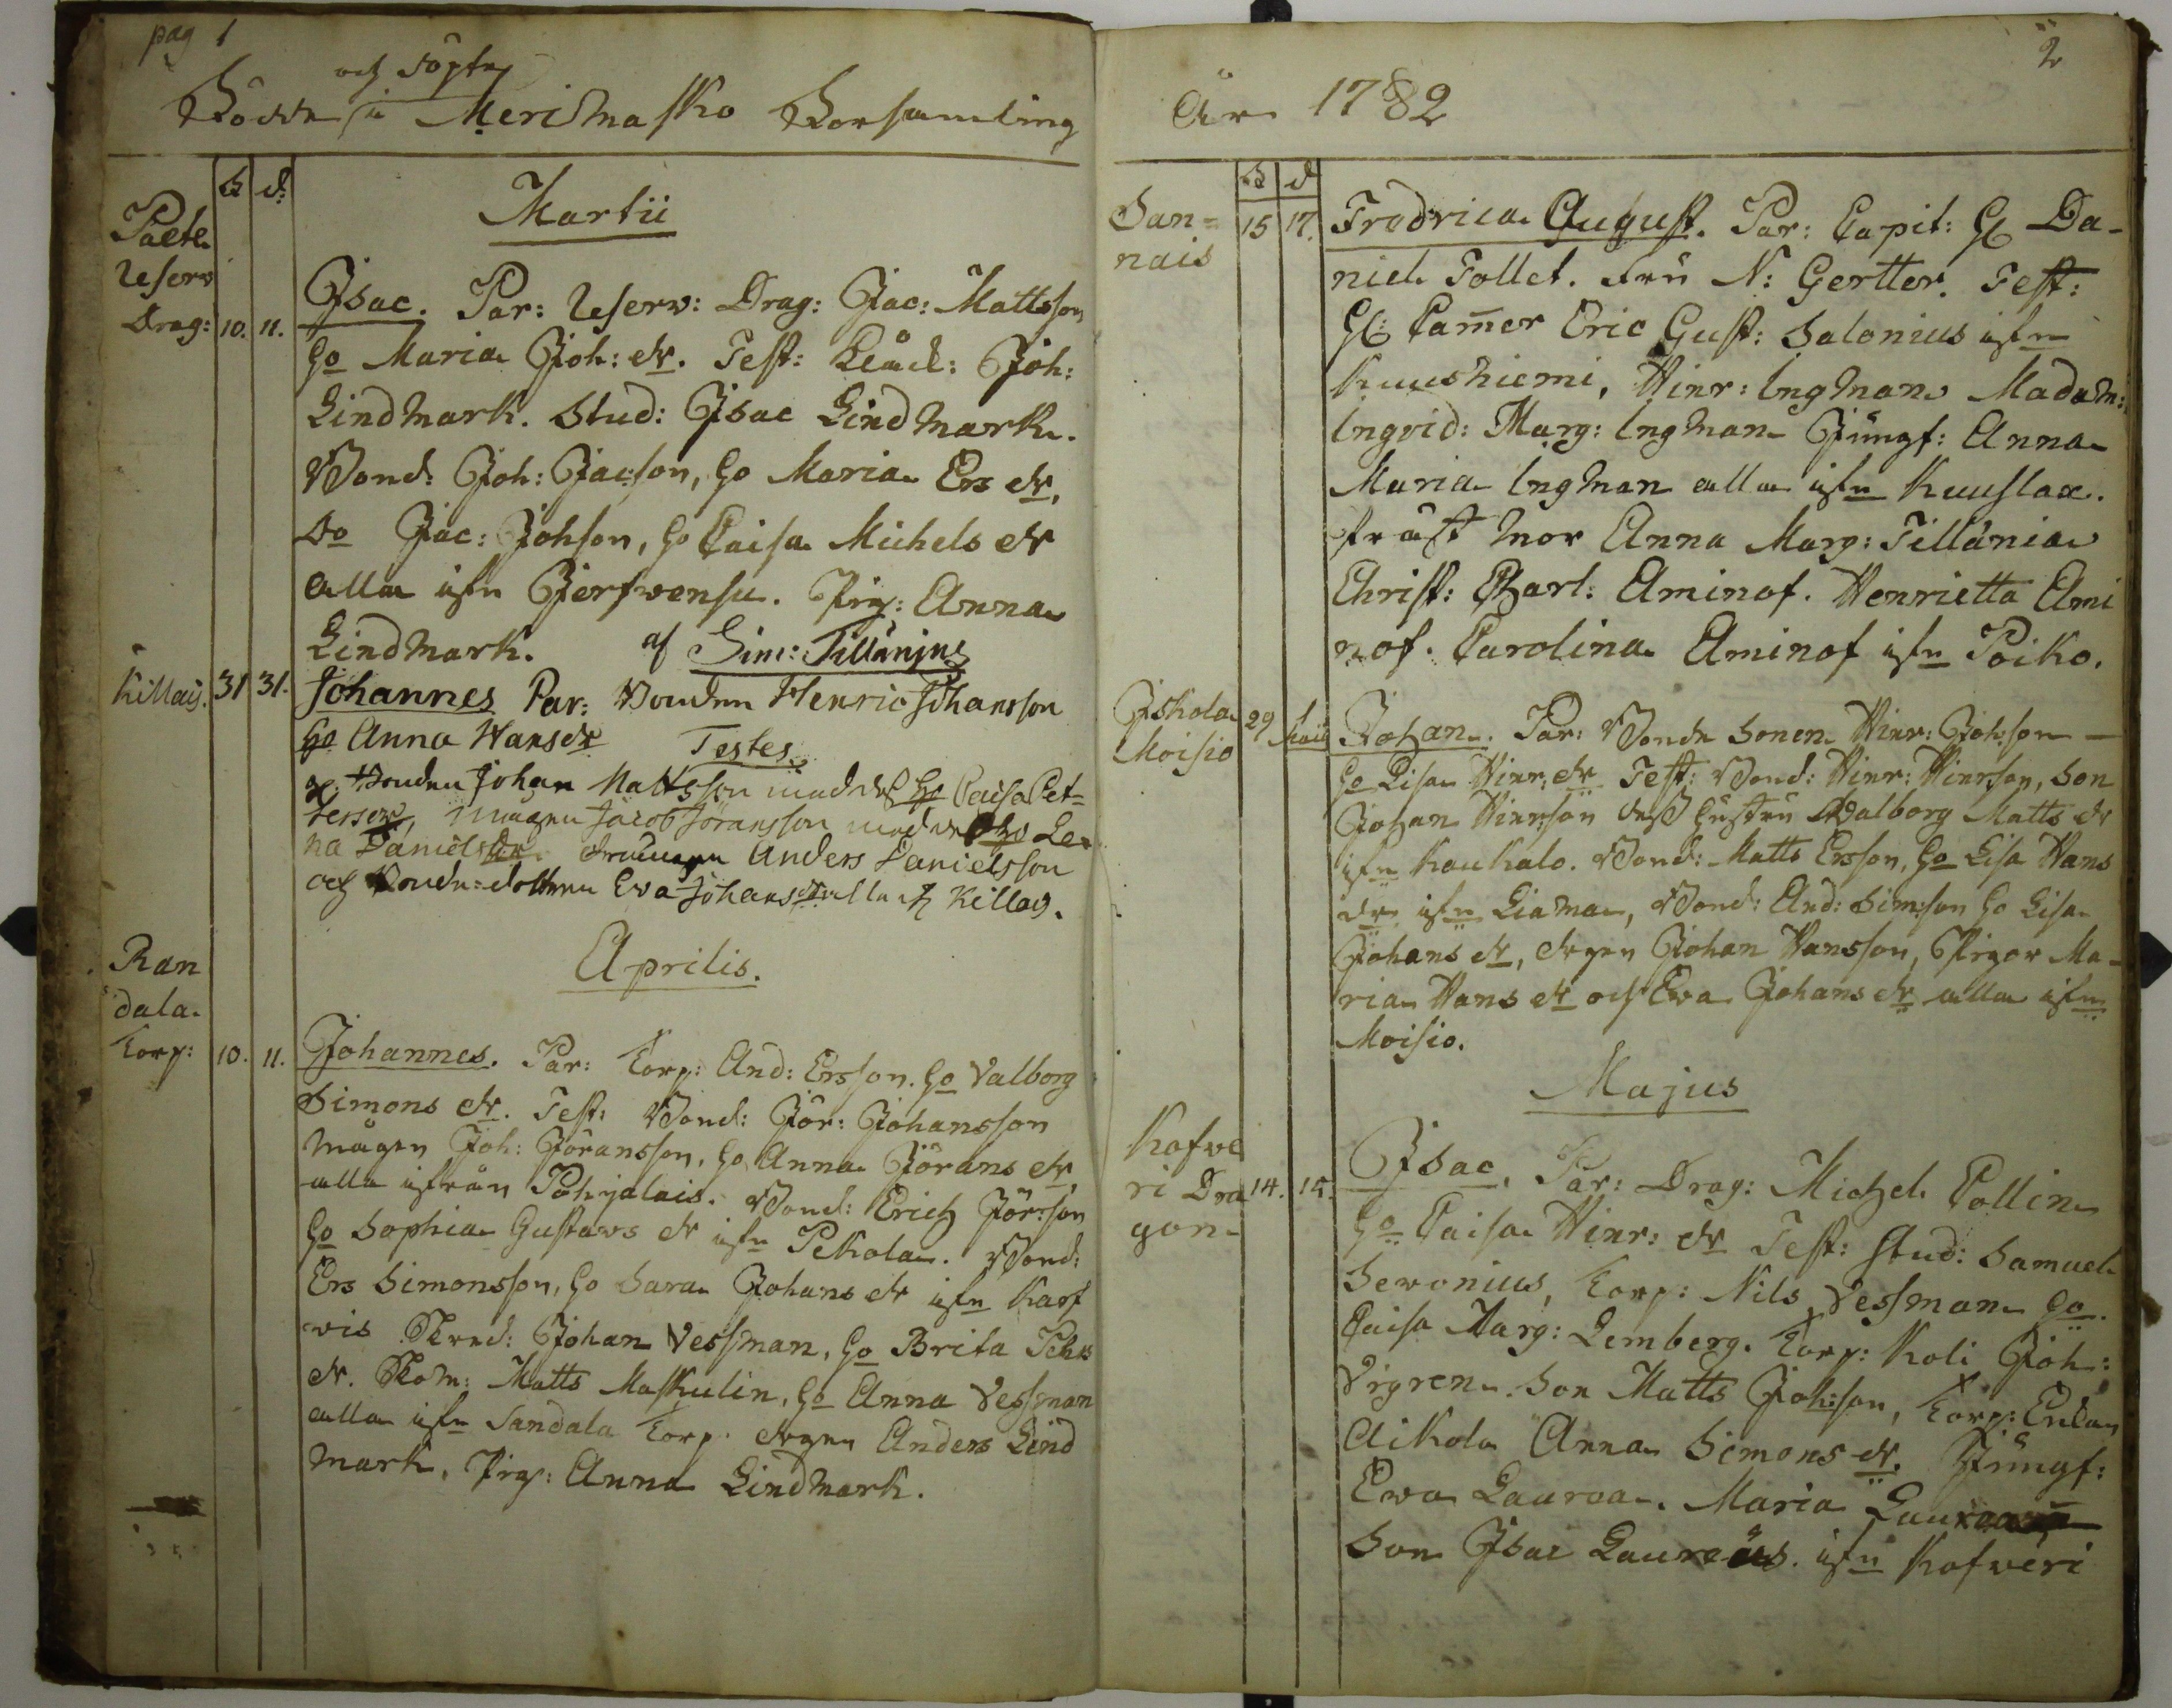 pag 1
och döpte
Födde i Merimasko Församling
h d:
Martii
Paeti
Reserv
Drag: 10. 11. Isac. Par: Reserv: Drag: Jac: Mattsson
ho Maria Joh: dr. Test: Joh:
Lindmark. Stud: Isac Lindmark.
Bond: Joh: Jacson, ho Maria Ers dr,
Do Jac: Johson, ho Caisa Michels dr
alla ifrn Jerfvensu. Pig: Anna
Lindmark. af Sim: Tillänius
Killais. 31 31. Johannes Par: Bonden Henric Johansson
ho Anna Hansdr Testes
Bonden Johan Mattsson med dess ho Caisa Pet=
tersdr, mågen Jacob Jöransson med dess ho Le
na Danielsdr. drängen Anders Danielsson
och Bonde=dottren Eva Johansdr alla fr Killais.
Aprilis.
Ran
dala
Torp: 10. 11. Johannes. Par: Torp: And: Ersson. ho Valborg
Simons dr. Test: Bond: Jör: Johansson
mågen Joh: Jöransson, ho Anna Jörans dr,
alla ifrån Pohjalais. Bond: Erich Jörsson
ho Sophia Gustavs dr ifrn Pekola. Bond:
Ers Simonsson, ho Sara Johans dr ifrn Karf
vis Johan Vessman, ho Brita
dr. Matts Maskulin, ho Anna Vessman
alla ifrn Sandala Torp. drgen Anders Lind
mark, Pig: Anna Lindmark.
2
År 1782
h d
San=
nais 15 17. Fredrica August. Par: Capit: H Da-
niel Tollet. Fru N: Gertter. Test:
H: Camer Eric Gust: Salonius ifrn
Kuusniemi, Hinr: Ingman Madam:
Ingrid: Marg: Ingman Jungf: Anna
Maria Ingman alla ifrn Kuuslax.
Prost mor Anna Marg: Tillänia
Christ: Charl: Aminof. Henrietta Ami
nof. Carolina Aminof ifrn Poiko.
Iskola
Moisio 29 1 Maii Johan. Par: Bonde Sonen Hinr: Johsson —
ho Lisa Hinr: dr Test: Bond: Hinr: Hinrson, Son
Johan Hinrson dess hustru Walborg Matts dr
ifrn Kaukalo. Bond: Matts Ersson, ho Lisa Hans
dr ifrn Liama, Bond: And: Simson ho Lisa
Johans dr, drgen Johan Hansson, Pigor Ma-
ria Hans dr och Ewa Johans dr alla ifrn
Moisio.
Majus
Kofve
ri Dra
gon 14. 15. Isac. Par: Drag: Michel Collin
ho Caisa Hinr: dr Test: Stud: Samuel
Seronius, Torp: Nils Vessman ho
Caisa Marg: Lemberg. Torp: Koli Joh:
Vigren. Son Matts Johson, Torp:
Aikola Anna Simons dr. Jungf:
Ewa Laurea. Maria
Son Isac Laureus. ifrn Kofveri